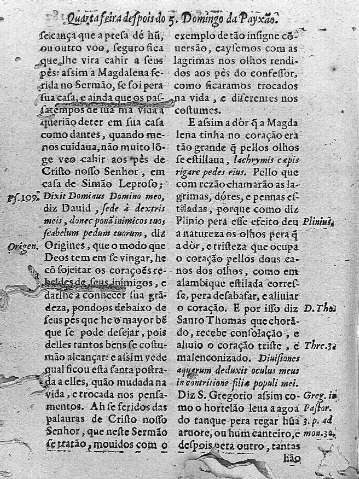 Quarta feira despois do 5. Domingo da Payxão.
se cança que a presa dè hũ,
ou outro voo, seguro fica
que lhe vira cahir a seus
pès: assim a Magdalena fe-
rida no Sermão, se foi pera
sua casa, e ainda que os pas-
satempos de sua má vida a
querião deter em sua casa
como dantes, quando me-
nos cuidaua, não muito lõ-
ge veo cahir aos pès de
Cristo nosso Senhor, em
casa de Simão Leproso;
Ps. 109. Dixit Dominus Domino meo,
diz Dauid, sede à dextris
meis, donec ponã inimicos tuos
scabelum pedum tuorum, diz
Origen. Origines, que o modo que
Deos tem em se vingar, he
cõ sojeitar os coraçoẽs re-
beldes de seus inimigos, e
darlhe a conhecer sua grã-
deza, pondoos debaixo de
seus pès que he o mayor bẽ
que se pode desejar, pois
delles tantos bens se costu-
mão alcançar: e assim vede
qual ficou esta santa postra-
da a elles, quão mudada na
vida, e trocada nos pensa-
mentos. Ah se feridos das
palauras de Cristo nosso
Senhor, que neste Sermão
se tratão, mouidos com o
exemplo de tão insigne cõ-
uersão, caysemos com as
lagrimas nos olhos rendi-
dos aos pès do confessor,
como ficaramos trocados
na vida, e diferentes nos
costumes.
E assim a dòr q̃ a Magda
lena tinha no coração era
tão grande q̃ pellos olhos
se estillaua, lachrymis cæpis
rigare pedes eius. Pello que
com rezão chamarão as la-
grimas, dòres, e pennas es-
tiladas, porque como diz
Plinio pera esse efeito deu Plinius.
a natureza os olhos pera q̃
a dòr, e tristeza que ocupa
o coração pellos dous ca-
nos dos olhos, como em
alambique estilada corres-
se, pera desabafar, e aliuiar
o coração. E por isso diz D. Tho.
Santo Thomas que chorã-
do, recebe consolação, e
aliuio o coração triste, e Thre. 3.
malenconizado. Diuisiones
aquarum deduxit oculus meus
in contritione filiæ populi mei.
Diz S. Gregorio assim co- Greg. in
mo o hortelão leua a agoa Pastor.
do tanque pera regar hũa 3. p. ad
aruore, ou hum canteiro, e mon. 30.
despois pera outro, tantas
hão